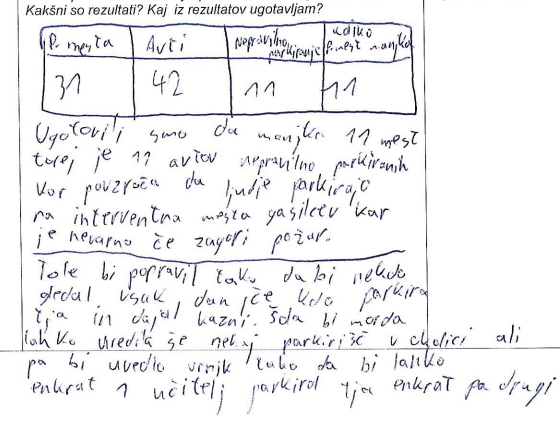 Kakšni so rezultati? Kaj iz rezultatov ugotavljam?
P. mesta Avti nepravilno parkiranje koliko P. mest manjka
31 42 11 11
Ugotovili smo da manjka 11 mest
torej je 11 avtov nepravilno parkiranih
kar povzroča da ljudje parkirajo
na interventna mesta gasilcev kar
je nevarno če zagori požar.
Tole bi popravil tako da bi nekdo
gledal vsak dan če kdo parkira
tja in dajal kazni. Šola bi morda
lahko uredila še nekaj parkirišč v okolici ali
pa bi uvedlo urnik tako da bi lahko
enkrat 1 učitelj parkiral tja enkrat pa drugi